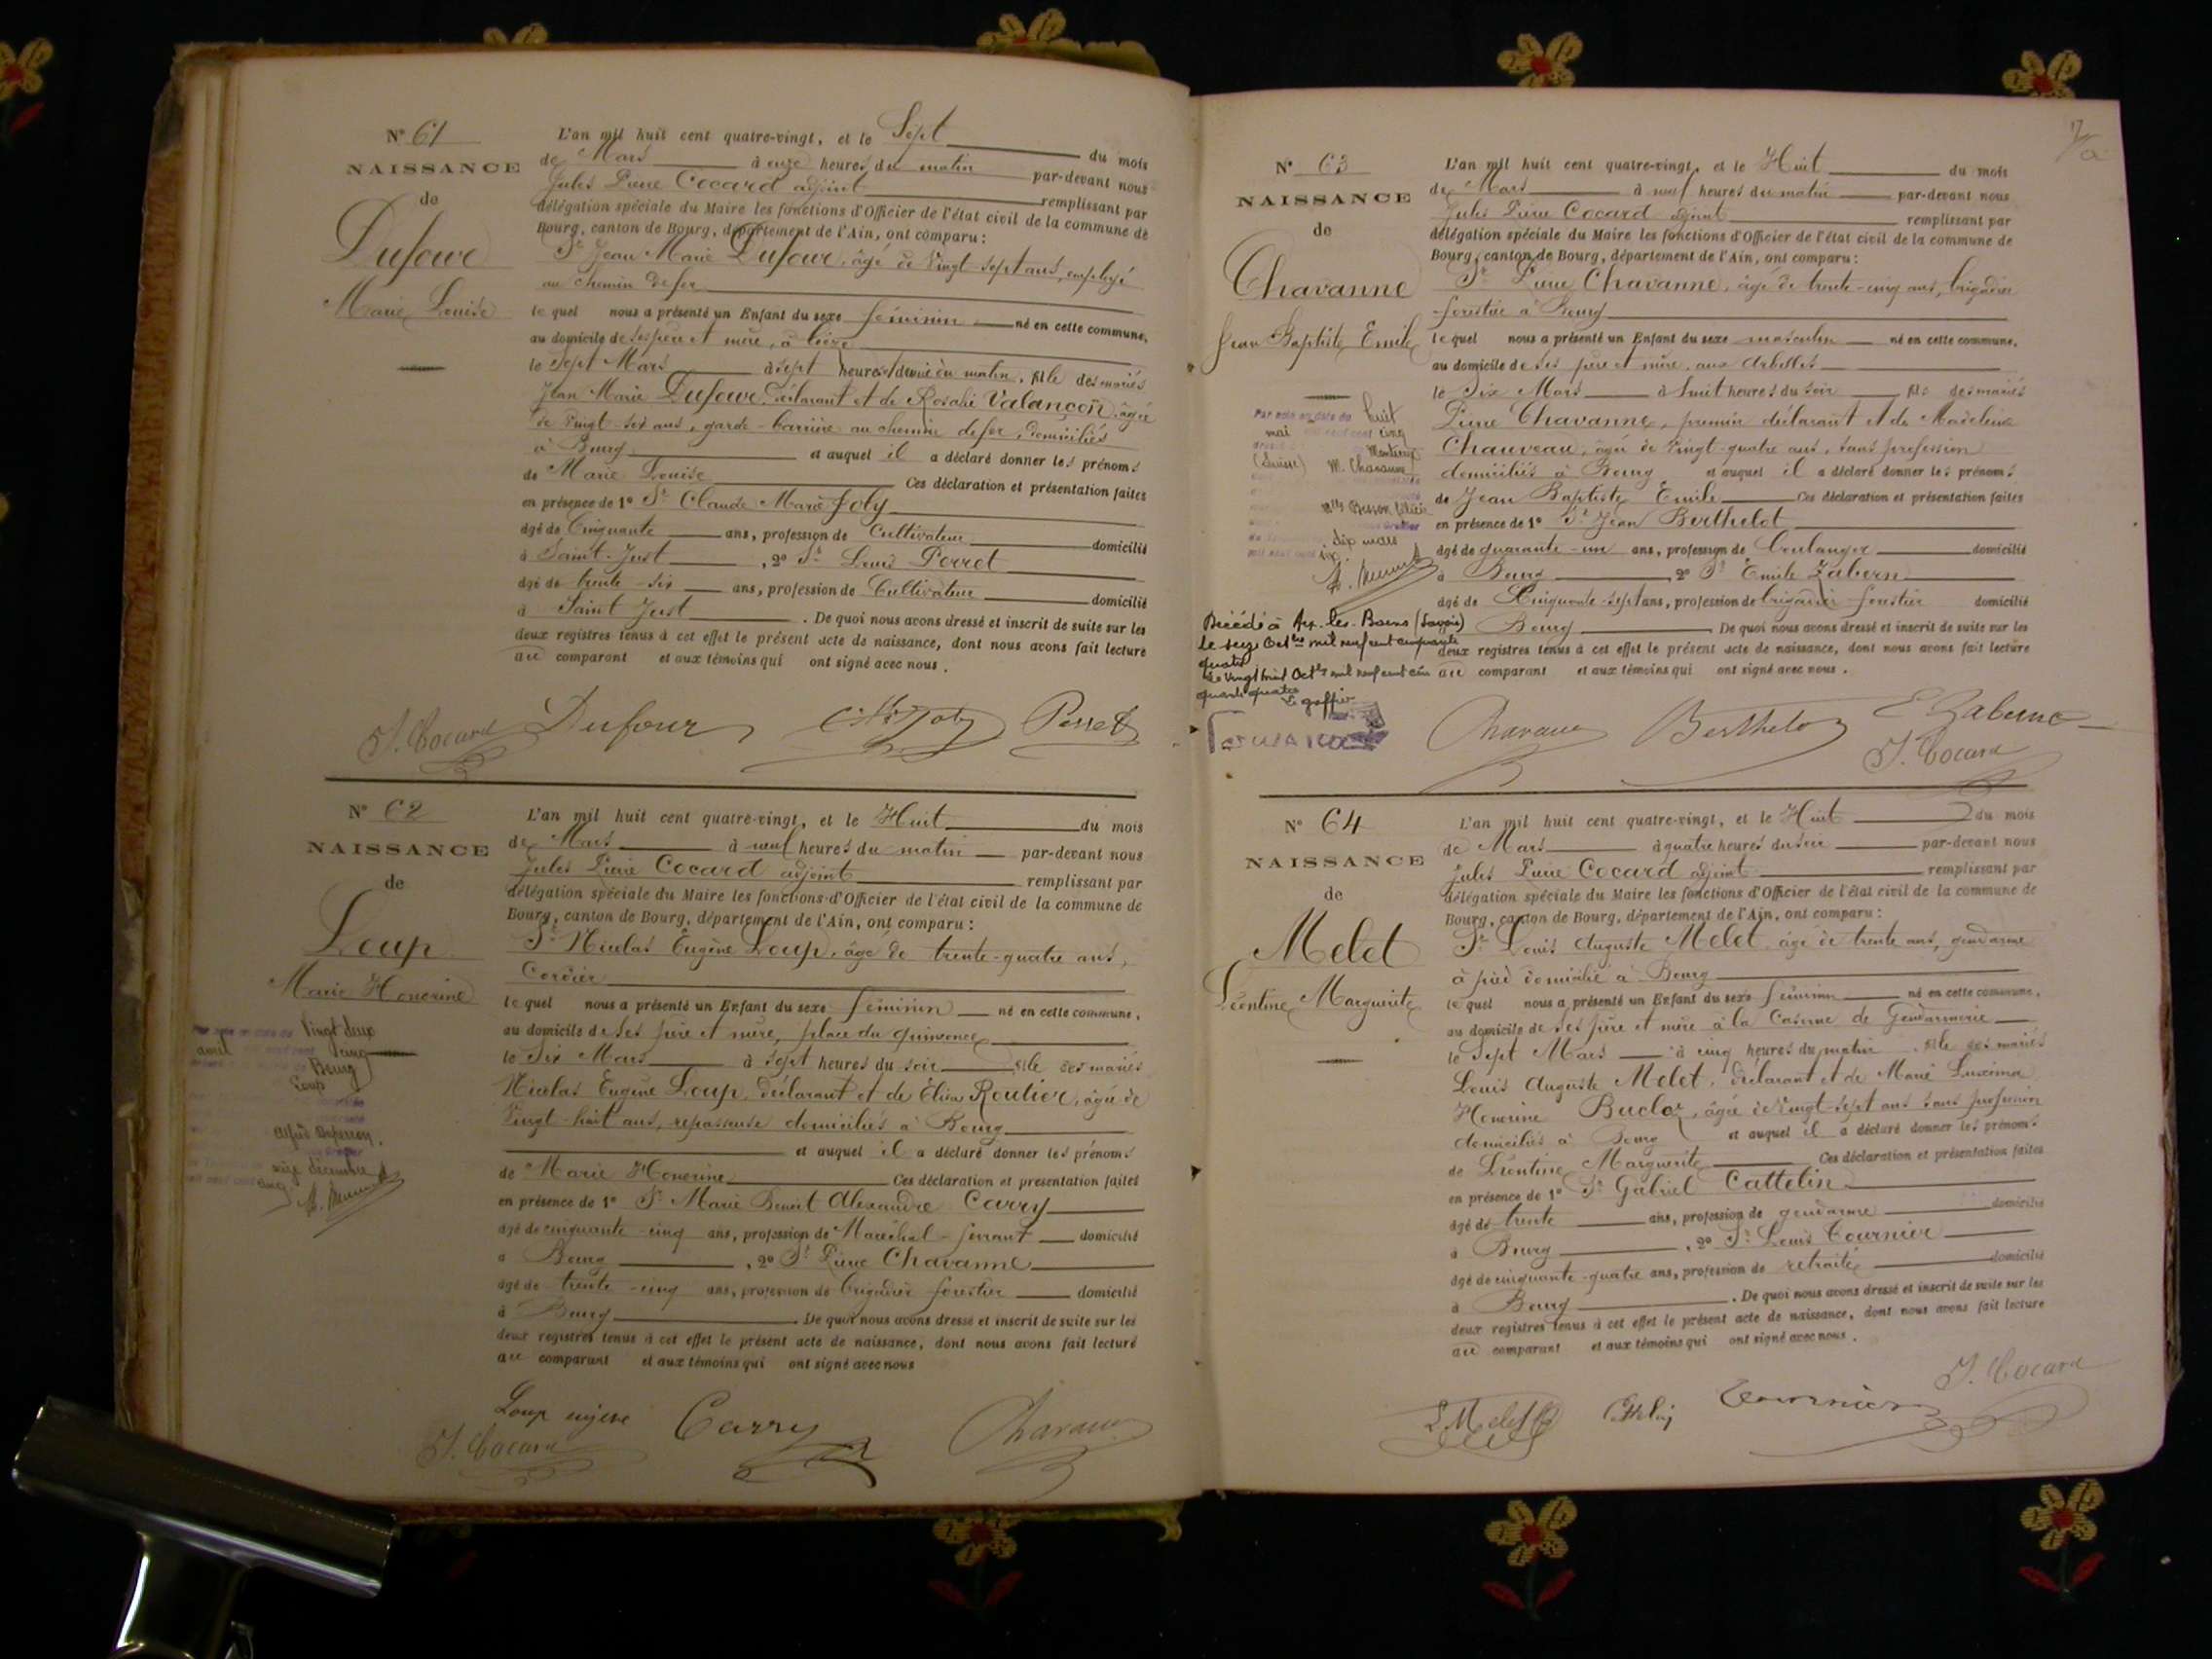 N° 61
NAISSANCE
de
Dufour
Marie Louise
L'an mil huit cent quatre-vingt, et le Sept du mois
de Mars à onze heures du matin par-devant nous
Jules Pierre Cocard adjoint remplissant par
délégation spéciale du Maire les fonctions d'Officier de l'état civil de la commune de
Bourg, canton de Bourg, département de l'Ain, ont comparu :
Sr Jean Marie Dufour, âgé de Vingt-sept ans, employé
au chemin de fer
lequel nous a présenté un Enfant du sexe féminin né en cette commune,
au domicile de ses père et mère, à
le Sept Mars à sept heures et demie du matin, fille des mariés
Jean Marie Dufour, déclarant et de Rosalie Valançon, âgée
de Vingt-six ans, garde-barrière au chemin de fer, domiciliés
à Bourg et auquel il a déclaré donner les prénoms
de Marie Louise Ces déclaration et présentation faites
en présence de 1° Sr Claude Marie Joly
âgé de Cinquante ans, profession de Cultivateur domicilié
à Saint-Just, 2° Sr Louis Perret
âgé de trente-six ans, profession de Cultivateur domicilié
à Saint Just. De quoi nous avons dressé et inscrit de suite sur les
deux registres tenus à cet effet le présent acte de naissance, dont nous avons fait lecture
au comparant et aux témoins qui ont signé avec nous.
J. Cocard Dufour Joly Perret
N° 62
NAISSANCE
de
Loup
Marie Honorine
Vingt-deux
avril cinq
Bourg
Loup
Alfred
onze décembre
cinq
L'an mil huit cent quatre-vingt, et le Huit du mois
de Mars à neuf heures du matin par-devant nous
Jules Pierre Cocard adjoint remplissant par
délégation spéciale du Maire les fonctions d'Officier de l'état civil de la commune de
Bourg, canton de Bourg, département de l'Ain, ont comparu :
Sr Nicolas Eugène Loup, âgé de trente-quatre ans,
Cordier
lequel nous a présenté un Enfant du sexe féminin né en cette commune,
au domicile de ses père et mère, place du quinconce
le Six Mars à sept heures du soir fille des mariés
Nicolas Eugène Loup, déclarant et de Elisa Routier, âgée de
Vingt-huit ans, repasseuse domiciliés à Bourg
et auquel il a déclaré donner les prénoms
de Marie Honorine Ces déclaration et présentation faites
en présence de 1° Sr Marie Benoit Alexandre Carry
âgé de cinquante-cinq ans, profession de Maréchal-ferrant domicilié
à Bourg, 2° Sr Pierre Chavanne
âgé de trente-cinq ans, profession de brigadier forestier domicilié
à Bourg. De quoi nous avons dressé et inscrit de suite sur les
deux registres tenus à cet effet le présent acte de naissance, dont nous avons fait lecture
au comparant et aux témoins qui ont signé avec nous
Loup Carry Chavanne
J. Cocard
N° 63
NAISSANCE
de
Chavanne
Jean Baptiste Emile
Par acte en date du huit
mai cinq
Montreux
(Suisse) M. Chavanne
Besson
dix mars
six
Décédé à Aix-les-Bains (Savoie)
le seize Octbre mil neuf cent cinquante
quatre
Le vingt huit Octbre mil neuf cent cin
quante quatre
Le greffier
L'an mil huit cent quatre-vingt, et le Huit du mois
de Mars à neuf heures du matin par-devant nous
Jules Pierre Cocard adjoint remplissant par
délégation spéciale du Maire les fonctions d'Officier de l'état civil de la commune de
Bourg, canton de Bourg, département de l'Ain, ont comparu :
Sr Pierre Chavanne, âgé de trente-cinq ans, brigadier
forestier à Bourg
lequel nous a présenté un Enfant du sexe masculin né en cette commune,
au domicile de ses père et mère, aux Arbelles
le Six Mars à huit heures du soir fils des mariés
Pierre Chavanne, premier déclarant et de Madeleine
Chauveau, âgée de Vingt-quatre ans, sans profession
domiciliés à Bourg et auquel il a déclaré donner les prénoms
de Jean Baptiste Emile Ces déclaration et présentation faites
en présence de 1° Sr Jean Berthelot
âgé de quarante-un ans, profession de boulanger domicilié
à Bourg, 2° Sr Emile Zabern
âgé de Cinquante-sept ans, profession de brigadier-forestier domicilié
Bourg. De quoi nous avons dressé et inscrit de suite sur les
deux registres tenus à cet effet le présent acte de naissance, dont nous avons fait lecture
au comparant et aux témoins qui ont signé avec nous.
Chavanne Berthelot E Zabern
J. Cocard
N° 64
NAISSANCE
de
Melet
Léontine Marguerite
L'an mil huit cent quatre-vingt, et le Huit du mois
de Mars à quatre heures du soir par-devant nous
Jules Pierre Cocard adjoint remplissant par
délégation spéciale du Maire les fonctions d'Officier de l'état civil de la commune de
Bourg, canton de Bourg, département de l'Ain, ont comparu :
Sr Louis Auguste Melet âgé de trente ans, gendarme
à pied domicilié à Bourg
lequel nous a présenté un Enfant du sexe féminin né en cette commune,
au domicile de ses père et mère à la Caserne de Gendarmerie
le Sept Mars à cinq heures du matin. fille des mariés
Louis Auguste Melet, déclarant et de Marie
Honorine Bucloz, âgée de Vingt-sept ans sans profession
domiciliés à Bourg et auquel il a déclaré donner les prénoms
de Léontine Marguerite Ces déclaration et présentation faites
en présence de 1° Sr Gabriel Cattelin
âgé de trente ans, profession de gendarme domicilié
à Bourg, 2° Sr Louis Tournier
âgé de cinquante-quatre ans, profession de retraité domicilié
à Bourg. De quoi nous avons dressé et inscrit de suite sur les
deux registres tenus à cet effet le présent acte de naissance, dont nous avons fait lecture
au comparant et aux témoins qui ont signé avec nous.
L Melet Cattelin Tournier J. Cocard